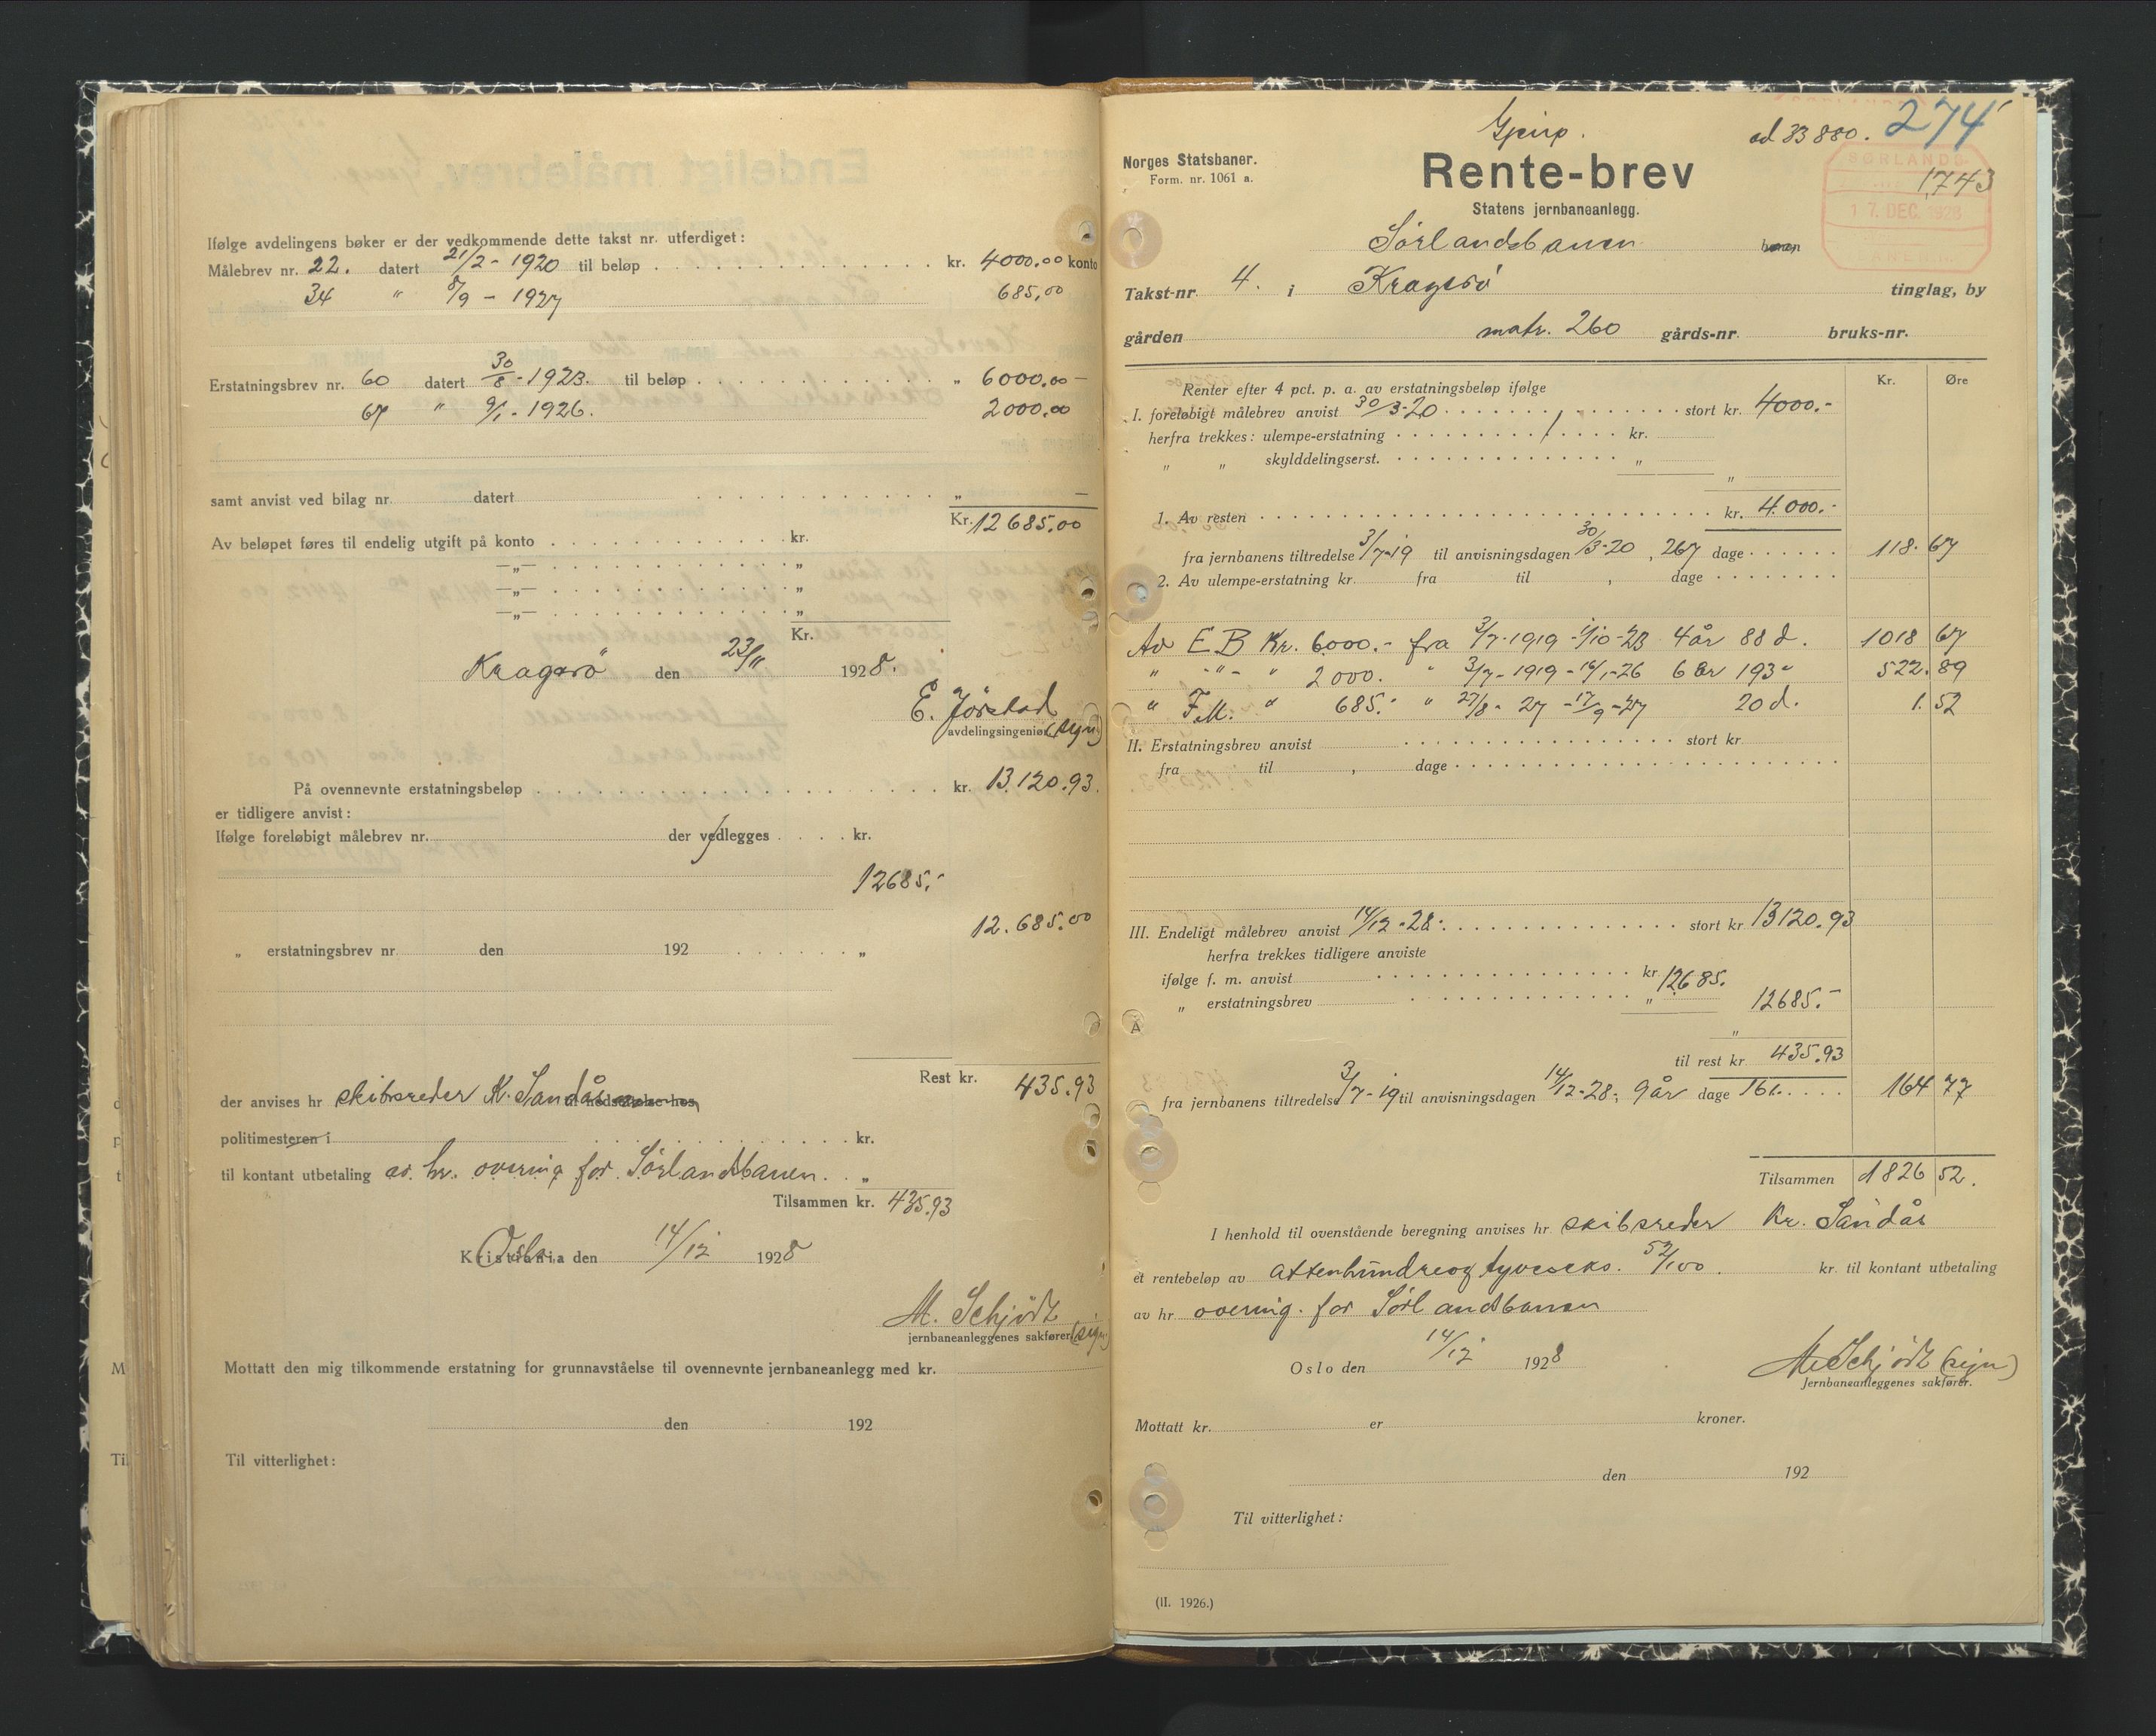 Ifølge avdelingens bøker er der vedkommende dette takst nr. utferdiget:
Målebrev nr. 22. datert 21/2 - 1920 til beløp kr. 4000.00 konto
34 " 8/9 - 1927 685,00
Erstatningsbrev nr. 60 datert 30/8 - 1923. til beløp " 6000.00 -
67 " 9/1 - 1926. 2000.00
samt anvist ved bilag nr. datert " -
Kr. 12685.00
Av beløpet føres til endelig utgift på konto kr.
—„— „
—„— „
—„— „
Kr.
Kragerø den 23/11 1928.
E. Jørstad
avdelingsingeniør (sign)
På ovennevnte erstatningsbeløp kr. 13.120.93.
er tidligere anvist:
Ifølge foreløbigt målebrev nr. der vedlegges kr.
12685.-
12.685.00
„ erstatningsbrev nr. den 192 „
Rest kr. 435.93
der anvises hr skibsreder K. Sandås til nedsettelse hos
politimesteren i kr.
til kontant utbetaling av hr. overing for Sørlandsbanen. „
Tilsammen kr. 435.93
Kristiania Oslo den 14/12 1928
M. Schjødt
jernbaneanleggenes sakfører (sign)
Mottatt den mig tilkommende erstatning for grunnavståelse til ovennevnte jernbaneanlegg med kr.
den 192
Til vitterlighet:
Gjenp. ad 33880. 274
Norges Statsbaner.
Form. nr. 1061 a.
Rente-brev
SØRLANDS-
1743
17. DEC. 1928
BANEN
Statens jernbaneanlegg.
Sørlandsbanen banen
Takst-nr. 4. i Kragerø tinglag, by
gården matr. 260 gårds-nr. bruks-nr.
Kr. Øre
Renter efter 4 pct. p. a. av erstatningsbeløp ifølge
I. foreløbigt målebrev anvist 30/3-20 stort kr. 4000.-
herfra trekkes: ulempe-erstatning kr.
„ „ skylddelingserst. „
„
1. Av resten kr. 4.000.-
fra jernbanens tiltredelse 3/7-19 til anvisningsdagen 30/3-20, 267 dage 118. 67
2. Av ulempe-erstatning kr. fra til , dage
Av E B Kr. 6000.- fra 3/7-1919 - 1/10-23 4 år 88 d. 1018 67
" -"- " 2000. " 3/7-1919 - 16/1-26 6 år 193 " 522. 89
" F.M. " 685.- " 27/8 - 27 - 17/9-27 20 d. 1. 52
II. Erstatningsbrev anvist stort kr.
fra til , dage
III. Endeligt målebrev anvist 14/12-28. stort kr. 13120.93
herfra trekkes tidligere anviste
ifølge f. m. anvist kr. 12685.
„ erstatningsbrev „ 12685.-
„
til rest kr. 435.93
fra jernbanens tiltredelse 3/7-19 til anvisningsdagen 14/12-28, 9 år dage 161. 164 77
Tilsammen 1826 52.
I henhold til ovenstående beregning anvises hr. skibsreder Kr. Sandås
et rentebeløp av attenhundreogtyveseks. 52/100. kr. til kontant utbetaling
av hr. overing. for Sørlandsbanen
Oslo den 14/12 1928
M Schjødt (sign)
Jernbaneanleggenes sakfører.
Mottatt kr. er kroner.
den 192
Til vitterlighet:
(II. 1926.)